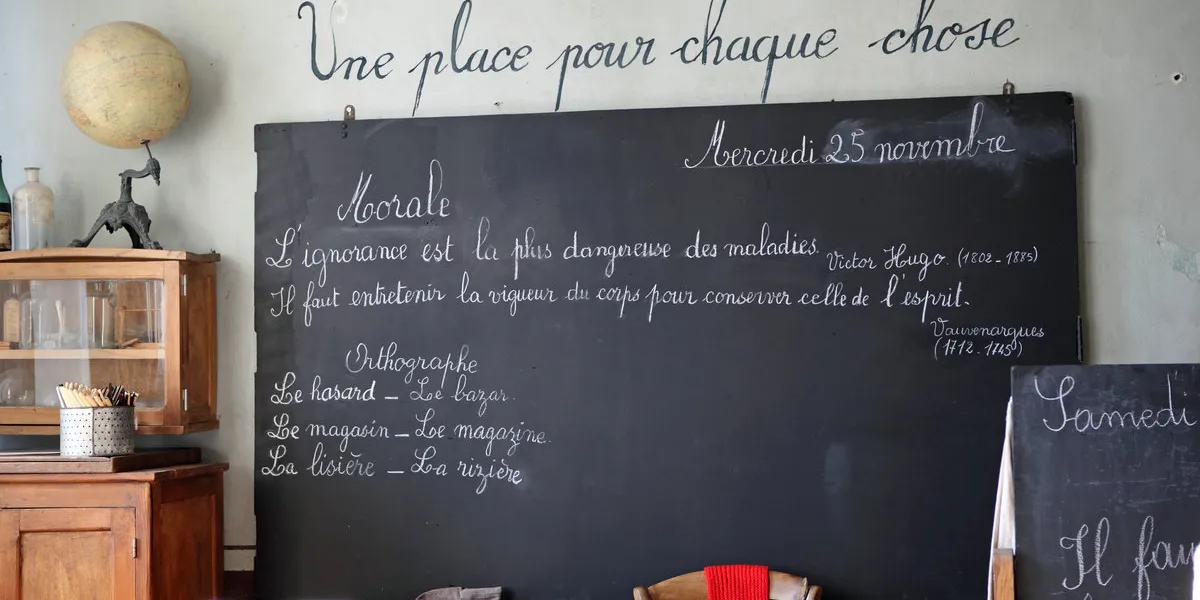 Une place pour chaque chose
Mercredi 25 novembre
Morale
L'ignorance est la plus dangereuse des maladies. Victor Hugo. (1802-1885)
Il faut entretenir la vigueur du corps pour conserver celle de l'esprit.
Vauvenargues
(1712-1745)
Orthographe
Le hasard - Le bazar.
Le magasin - Le magazine.
La lisière - La rizière
Samedi
Il fau